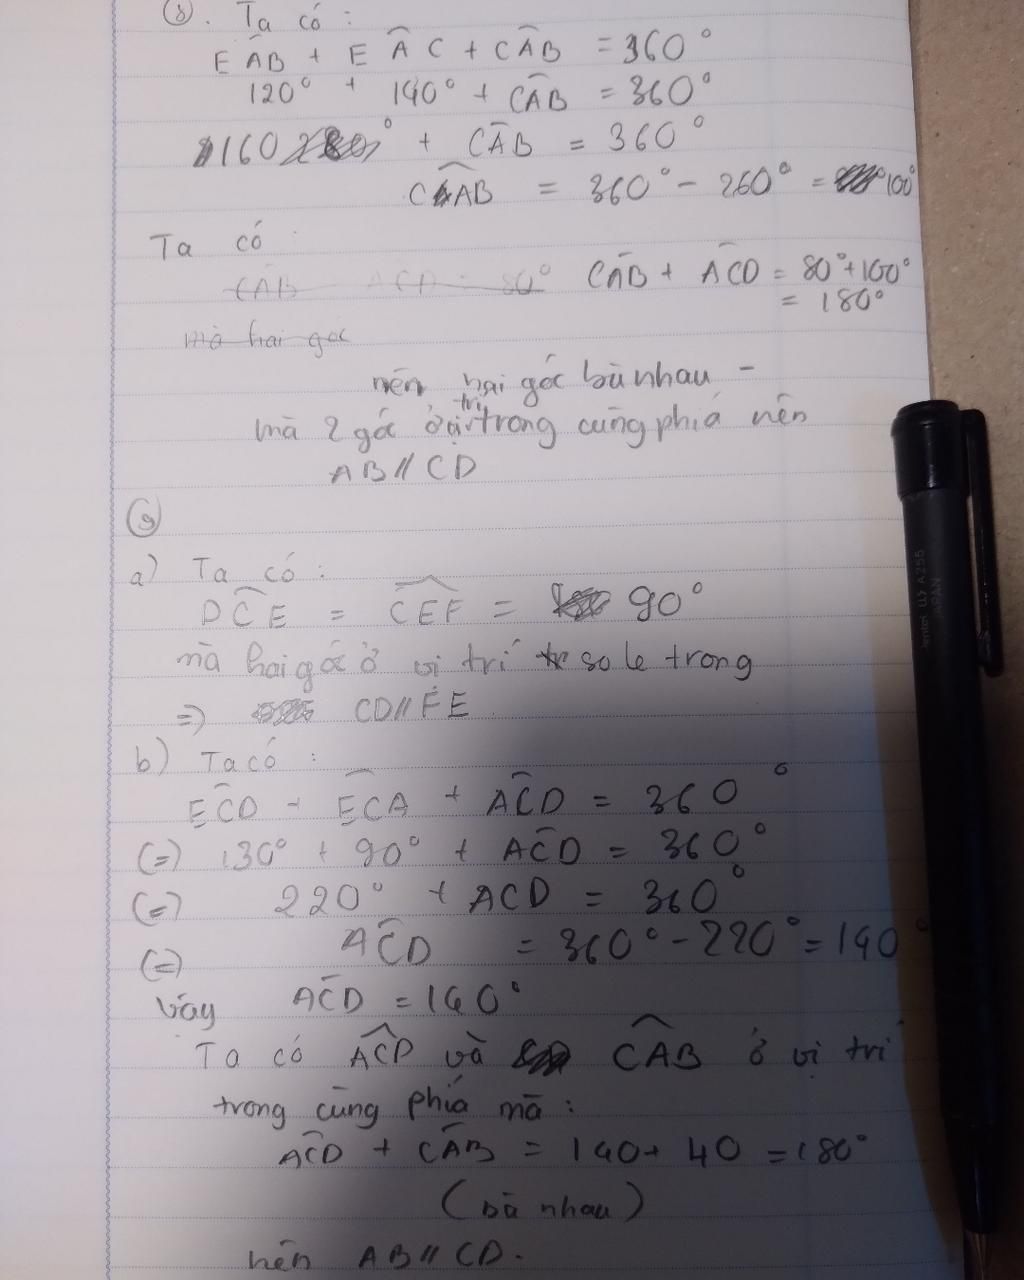 8. Ta có :
EÂB + EÂC + CÂB = 360°
120° + 140° + CÂB = 360°
160° + CÂB = 360°
CÂB = 360° - 260° = 100°
Ta có :
CÂB ACD = 80° CÂB + ACD = 80° + 100°
= 180°
mà hai góc
nên hai góc bù nhau -
mà 2 góc ở vị trí trong cùng phía nên
AB // CD
9
a) Ta có :
DĈE = CÊF = 90°
mà hai góc ở vị trí so le trong
=> CD // FE
b) Ta có :
EĈD + EĈA + AĈD = 360°
(=) 130° + 90° + AĈD = 360°
(=) 220° + ACD = 360°
(=) AĈD = 360° - 220° = 140°
Vậy AĈD = 140°
Ta có AĈD và CÂB ở vị trí
trong cùng phía mà :
AĈD + CÂB = 140 + 40 = 180°
(bù nhau)
nên AB // CD.
A255
JAPAN